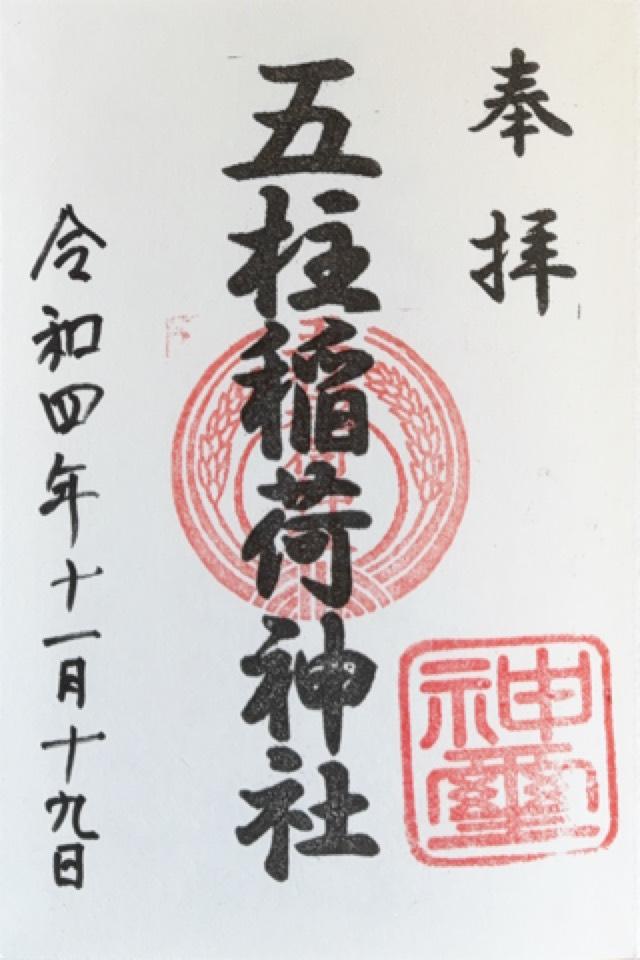 奉拝
五柱稲荷神社
神璽
令和四年十一月十九日